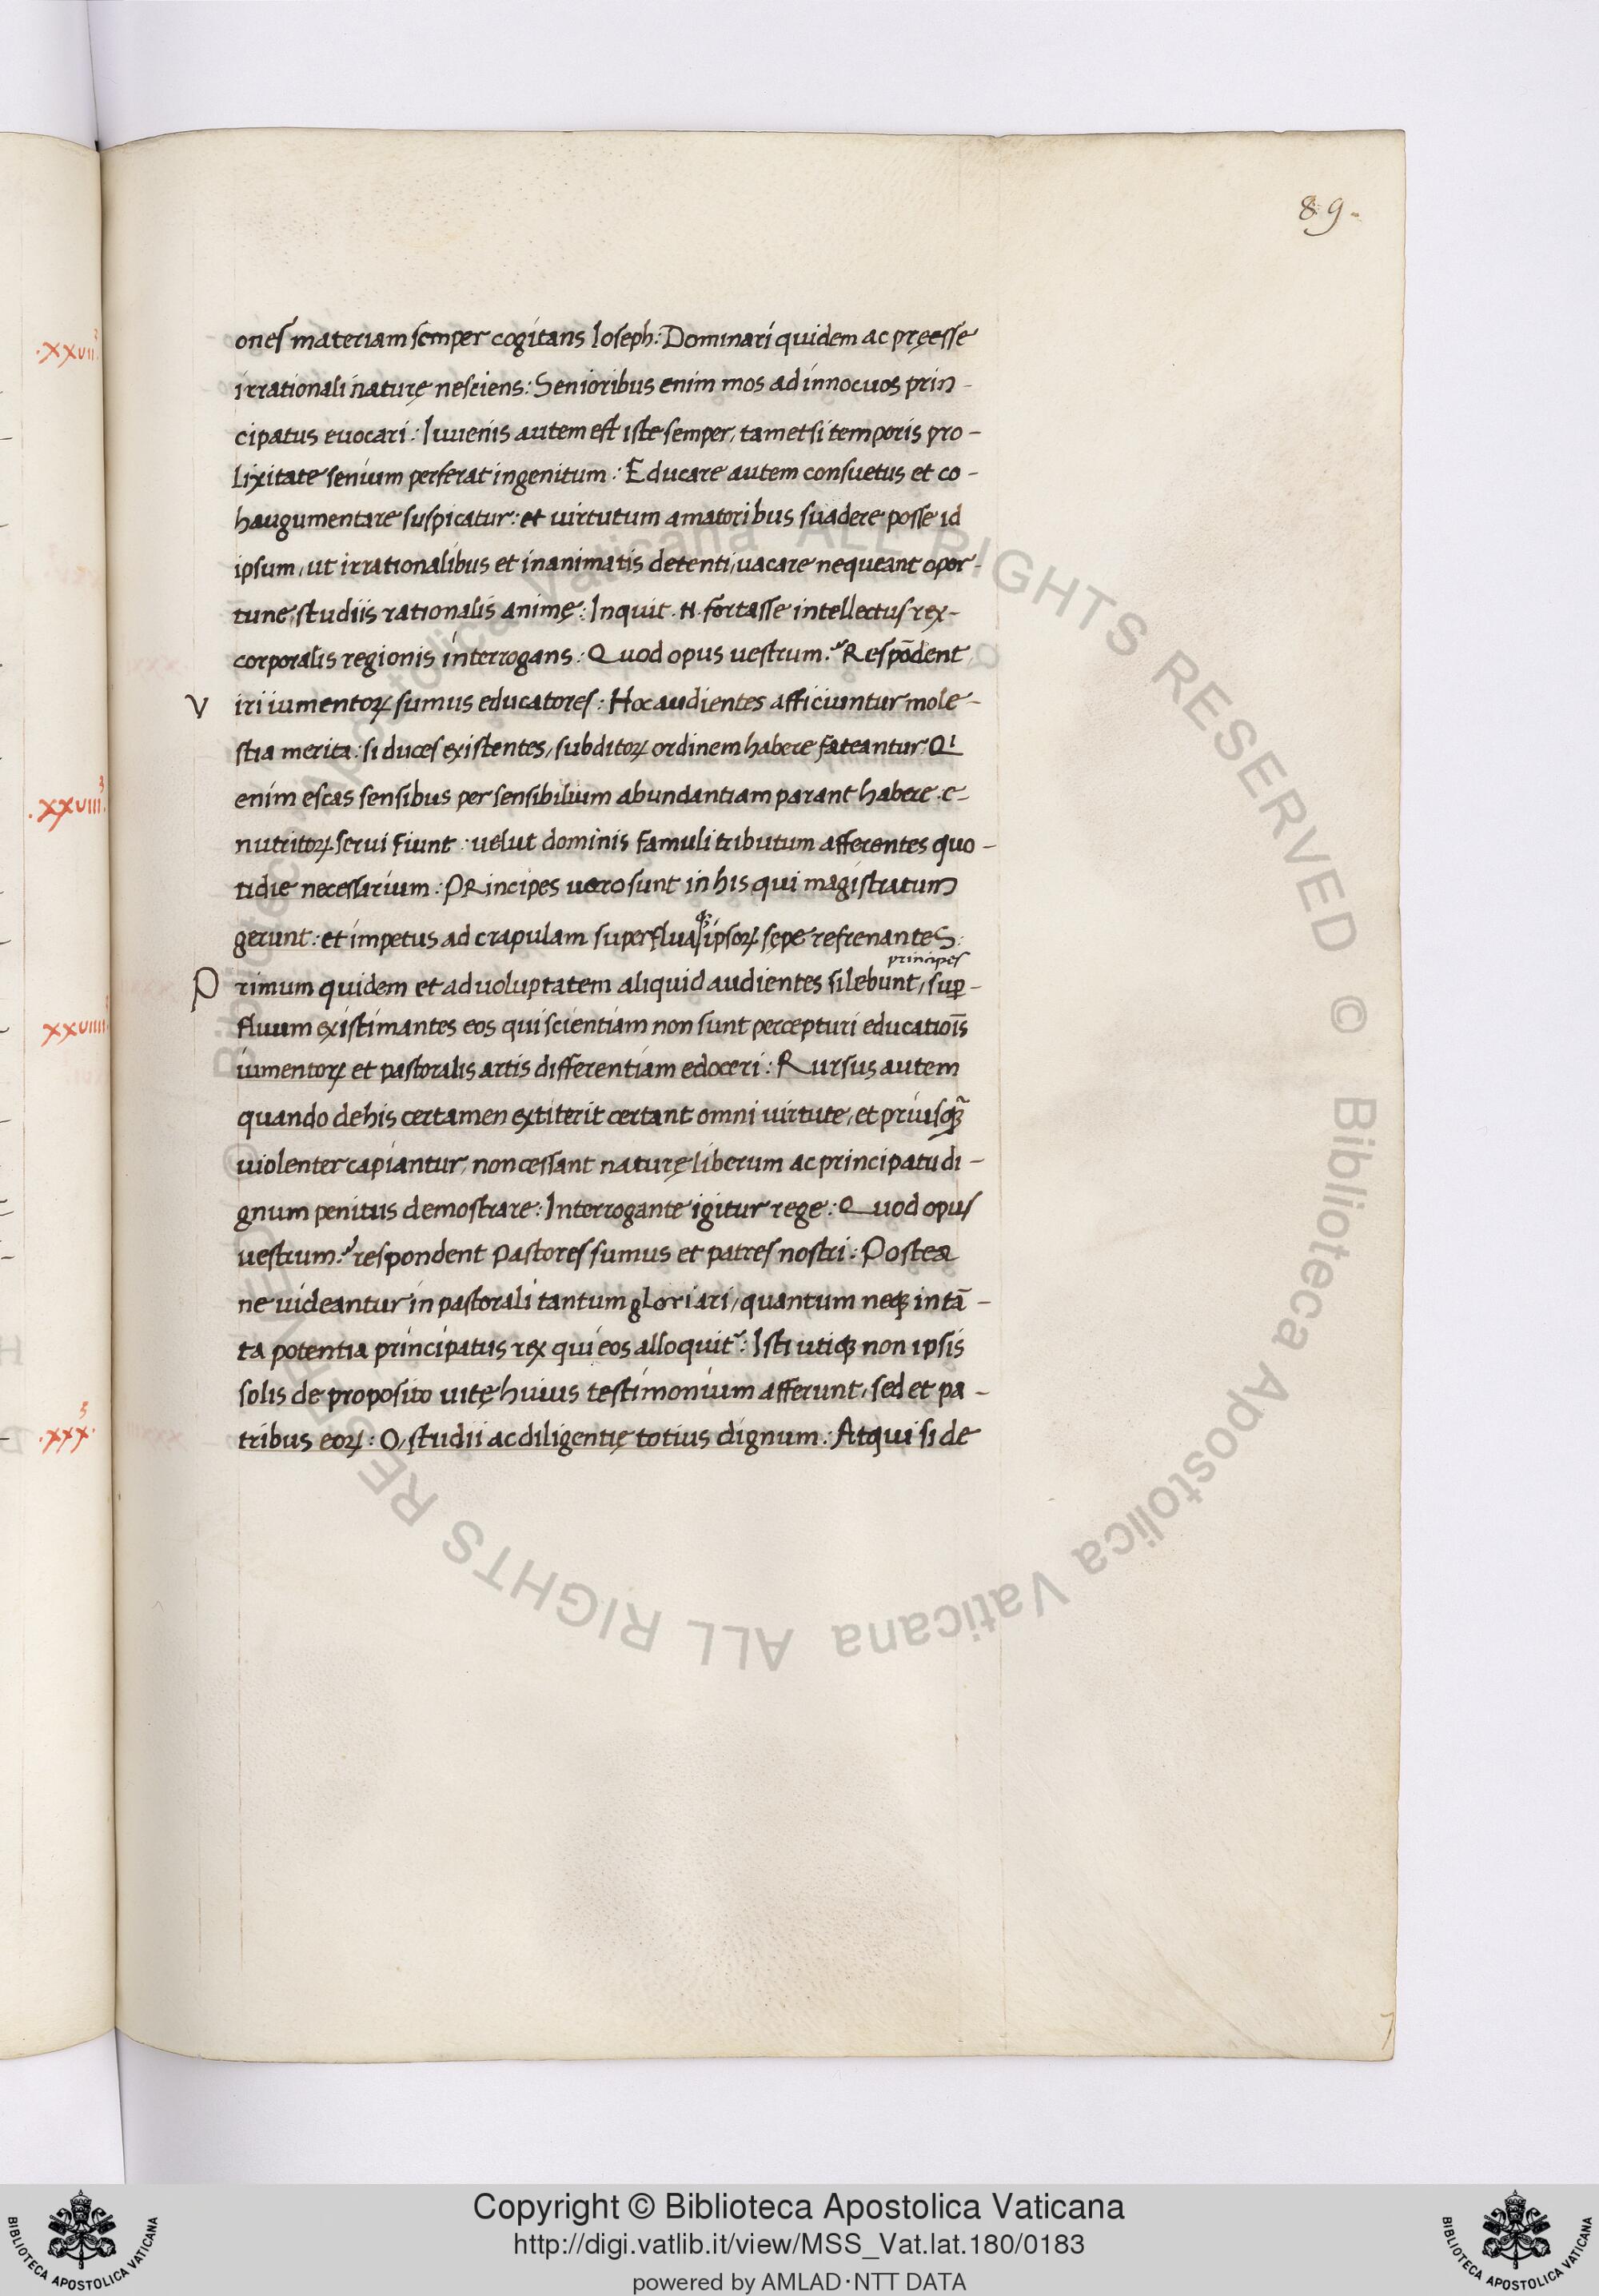 89.
ones materiam semper cogitans Ioseph: Dominari quidem ac pręesse
irrationali naturę nesciens: Senioribus enim mos ad innocuos prin-
cipatus euocari: Iuuenis autem est iste semper, tametsi temporis pro-
lixitate senium perferat ingenitum: Educare autem consuetus et co-
haugumentare suspicatur: et uirtutum amatoribus suadere posse id
ipsum, ut irrationalibus et inanimatis detenti, uacare nequeant opor-
tune, studiis rationalis animę: Inquit .N. fortasse intellectus rex-
corporalis regionis interrogans: Quod opus uestrum? Respōdent
V iri iumentoꝝ sumus educatores: Hoc audientes afficiuntur mole-
stia merita: si duces existentes, subditoꝝ ordinem habere fateantur: QI
enim escas sensibus per sensibilium abundantiam parant habere. e-
nutritoꝝ serui fiunt: uelut dominis famuli tributum afferentes quo-
tidie necessarium: PRincipes uero sunt in his qui magistratum
gerunt: et impetus ad crapulam superflua ipsoꝝ sępe refrenanteS:
principes
P rimum quidem et ad uoluptatem aliquid audientes silebunt, suꝑ-
fluum existimantes eos qui scientiam non sunt percepturi educatiōis
iumentoꝝ et pastoralis artis differentiam edoceri: Rursus autem
quando de his certamen extiterit certant omni uirtute, et priusqꝫ̃
uiolenter capiantur, non cessant naturę liberum ac principatu di-
gnum penitus demostrare: Interrogante igitur rege: Quod opus
uestrum? respondent Pastores sumus et patres nostri: Postea
ne uideantur in pastorali tantum gloriari, quantum neqꝫ in tā-
ta potentia principatus rex qui eos alloquitᷣ: Isti utiqꝫ non ipsis
solis de proposito uitę huius testimonium afferunt, sed et pa-
tribus eoꝝ: O, studii ac diligentię totius dignum: Atqui si de
.xxuii.
.xxuiii.
xxuiiii
.xxx.
Copyright © Biblioteca Apostolica Vaticana
http://digi.vatlib.it/view/MSS_Vat.lat.180/0183
powered by AMLAD·NTT DATA
BIBLIOTECA APOSTOLICA VATICANA
BIBLIOTECA APOSTOLICA VATICANA
© Biblioteca Apostolica Vaticana ALL RIGHTS RESERVED © Biblioteca Apostolica Vaticana ALL RIGHTS RESERVED